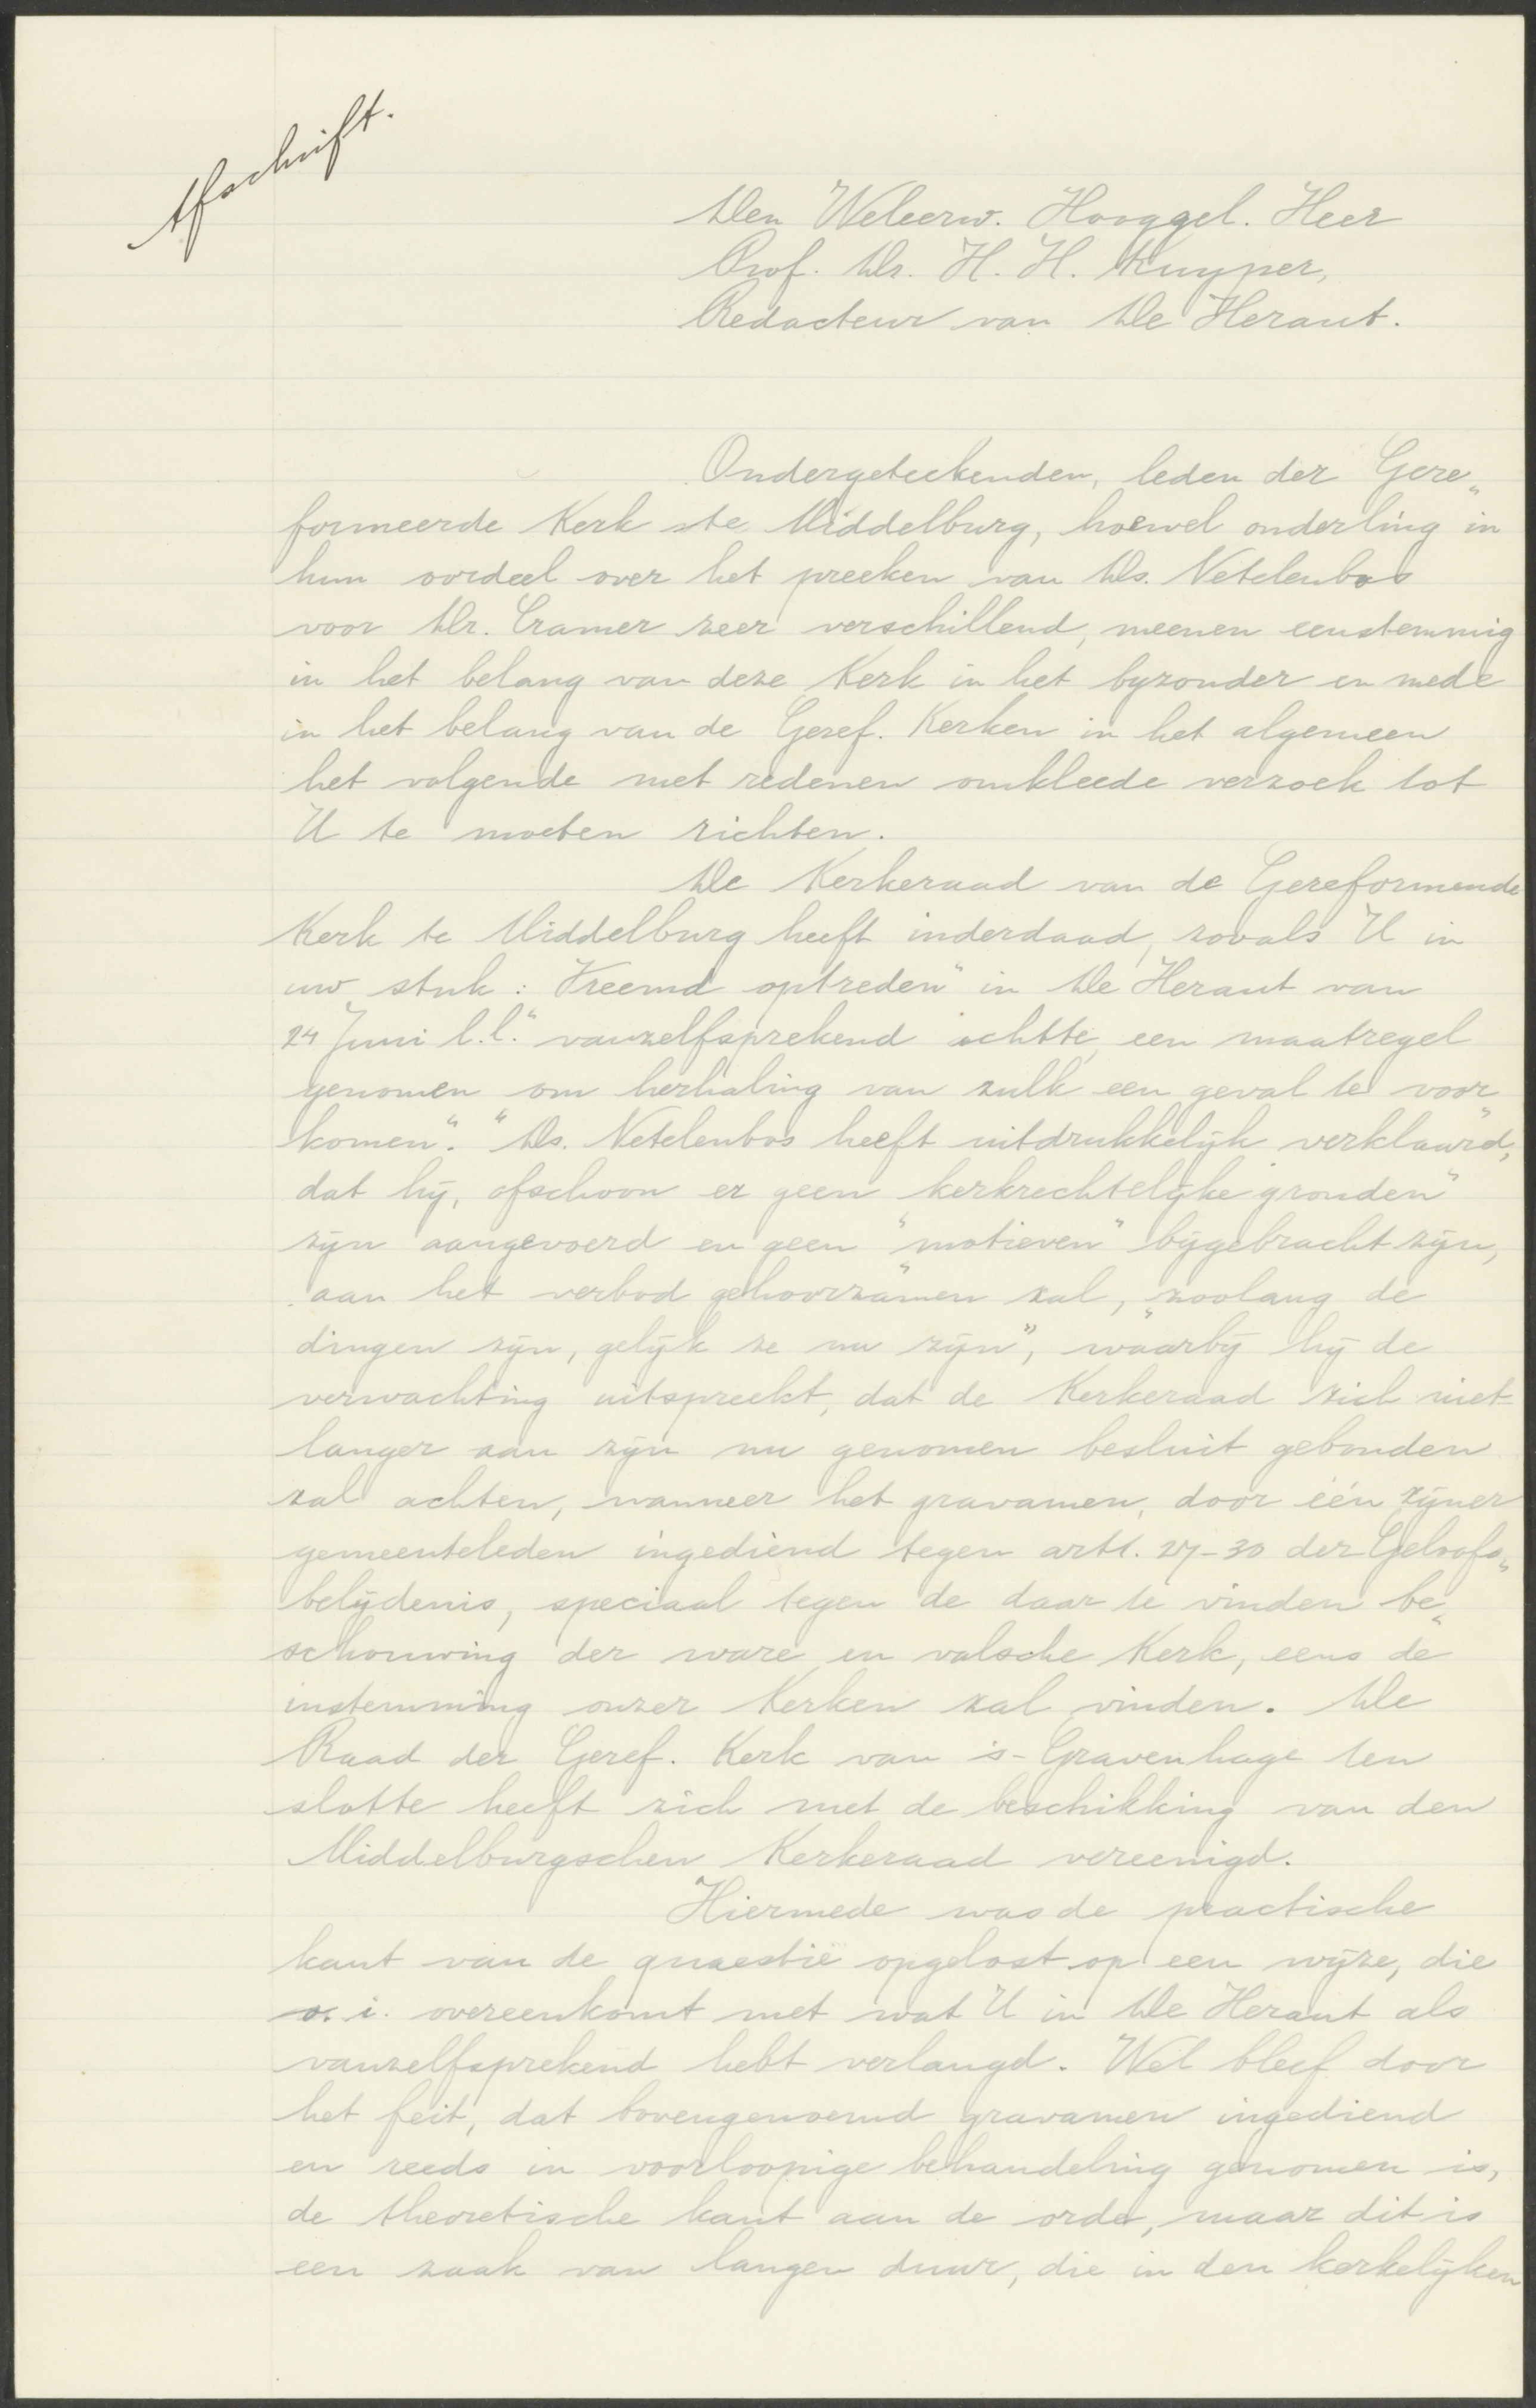 Afschrift.
Den Weleerw. Hooggel. Heer
Prof. Dr. H. H. Kuyper,
Redacteur van De Heraut.
Ondergeteekenden, leden der Gere„
formeerde Kerk te Middelburg, hoewel onderling in
hun oordeel over het preeken van Ds. Netelenbos
voor Dr. Cramer zeer verschillend, meenen eenstemmig
in het belang van deze Kerk in het byzonder en mede
in het belang van de Geref. Kerken in het algemeen
het volgende met redenen omkleede verzoek tot
U te moeten richten.
De Kerkeraad van de Gereformeerde
Kerk te Middelburg heeft inderdaad, zooals U in
uw stuk: „Vreemd optreden" in De Heraut van
24 Juni l.l. "vanzelfsprekend achtte, een maatregel
genomen om herhaling van zulk een geval te voor„
komen". "Ds. Netelenbos heeft uitdrukkelijk verklaard,
dat hij, ofschoon er geen "kerkrechtelijke gronden"
zijn aangevoerd en geen "motieven" bijgebracht zijn,
aan het verbod gehoorzamen zal, "zoolang de
dingen zijn, gelijk ze nu zijn", waarbij hij de
verwachting uitspreekt, dat de Kerkeraad zich niet
langer aan zijn nu genomen besluit gebonden
zal achten, wanneer het gravamen, door één zijner
gemeenteleden ingediend tegen artt. 27-30 der Geloofs„
belijdenis, speciaal tegen de daar te vinden be„
schouwing der ware en valsche Kerk, eens de
instemming onzer Kerken zal vinden. De
Raad der Geref. Kerk van 's-Gravenhage ten
slotte heeft zich met de beschikking van den
Middelburgschen Kerkeraad vereenigd.
Hiermede was de practische
kant van de quaestie opgelost op een wijze, die
o. i. overeenkomt met wat U in De Heraut als
vanzelfsprekend hebt verlangd. Wel bleef door
het feit, dat bovengenoemd gravamen ingediend
en reeds in voorloopige behandeling genomen is,
de theoretische kant aan de orde, maar dit is
een zaak van langen duur, die in den kerkelijken